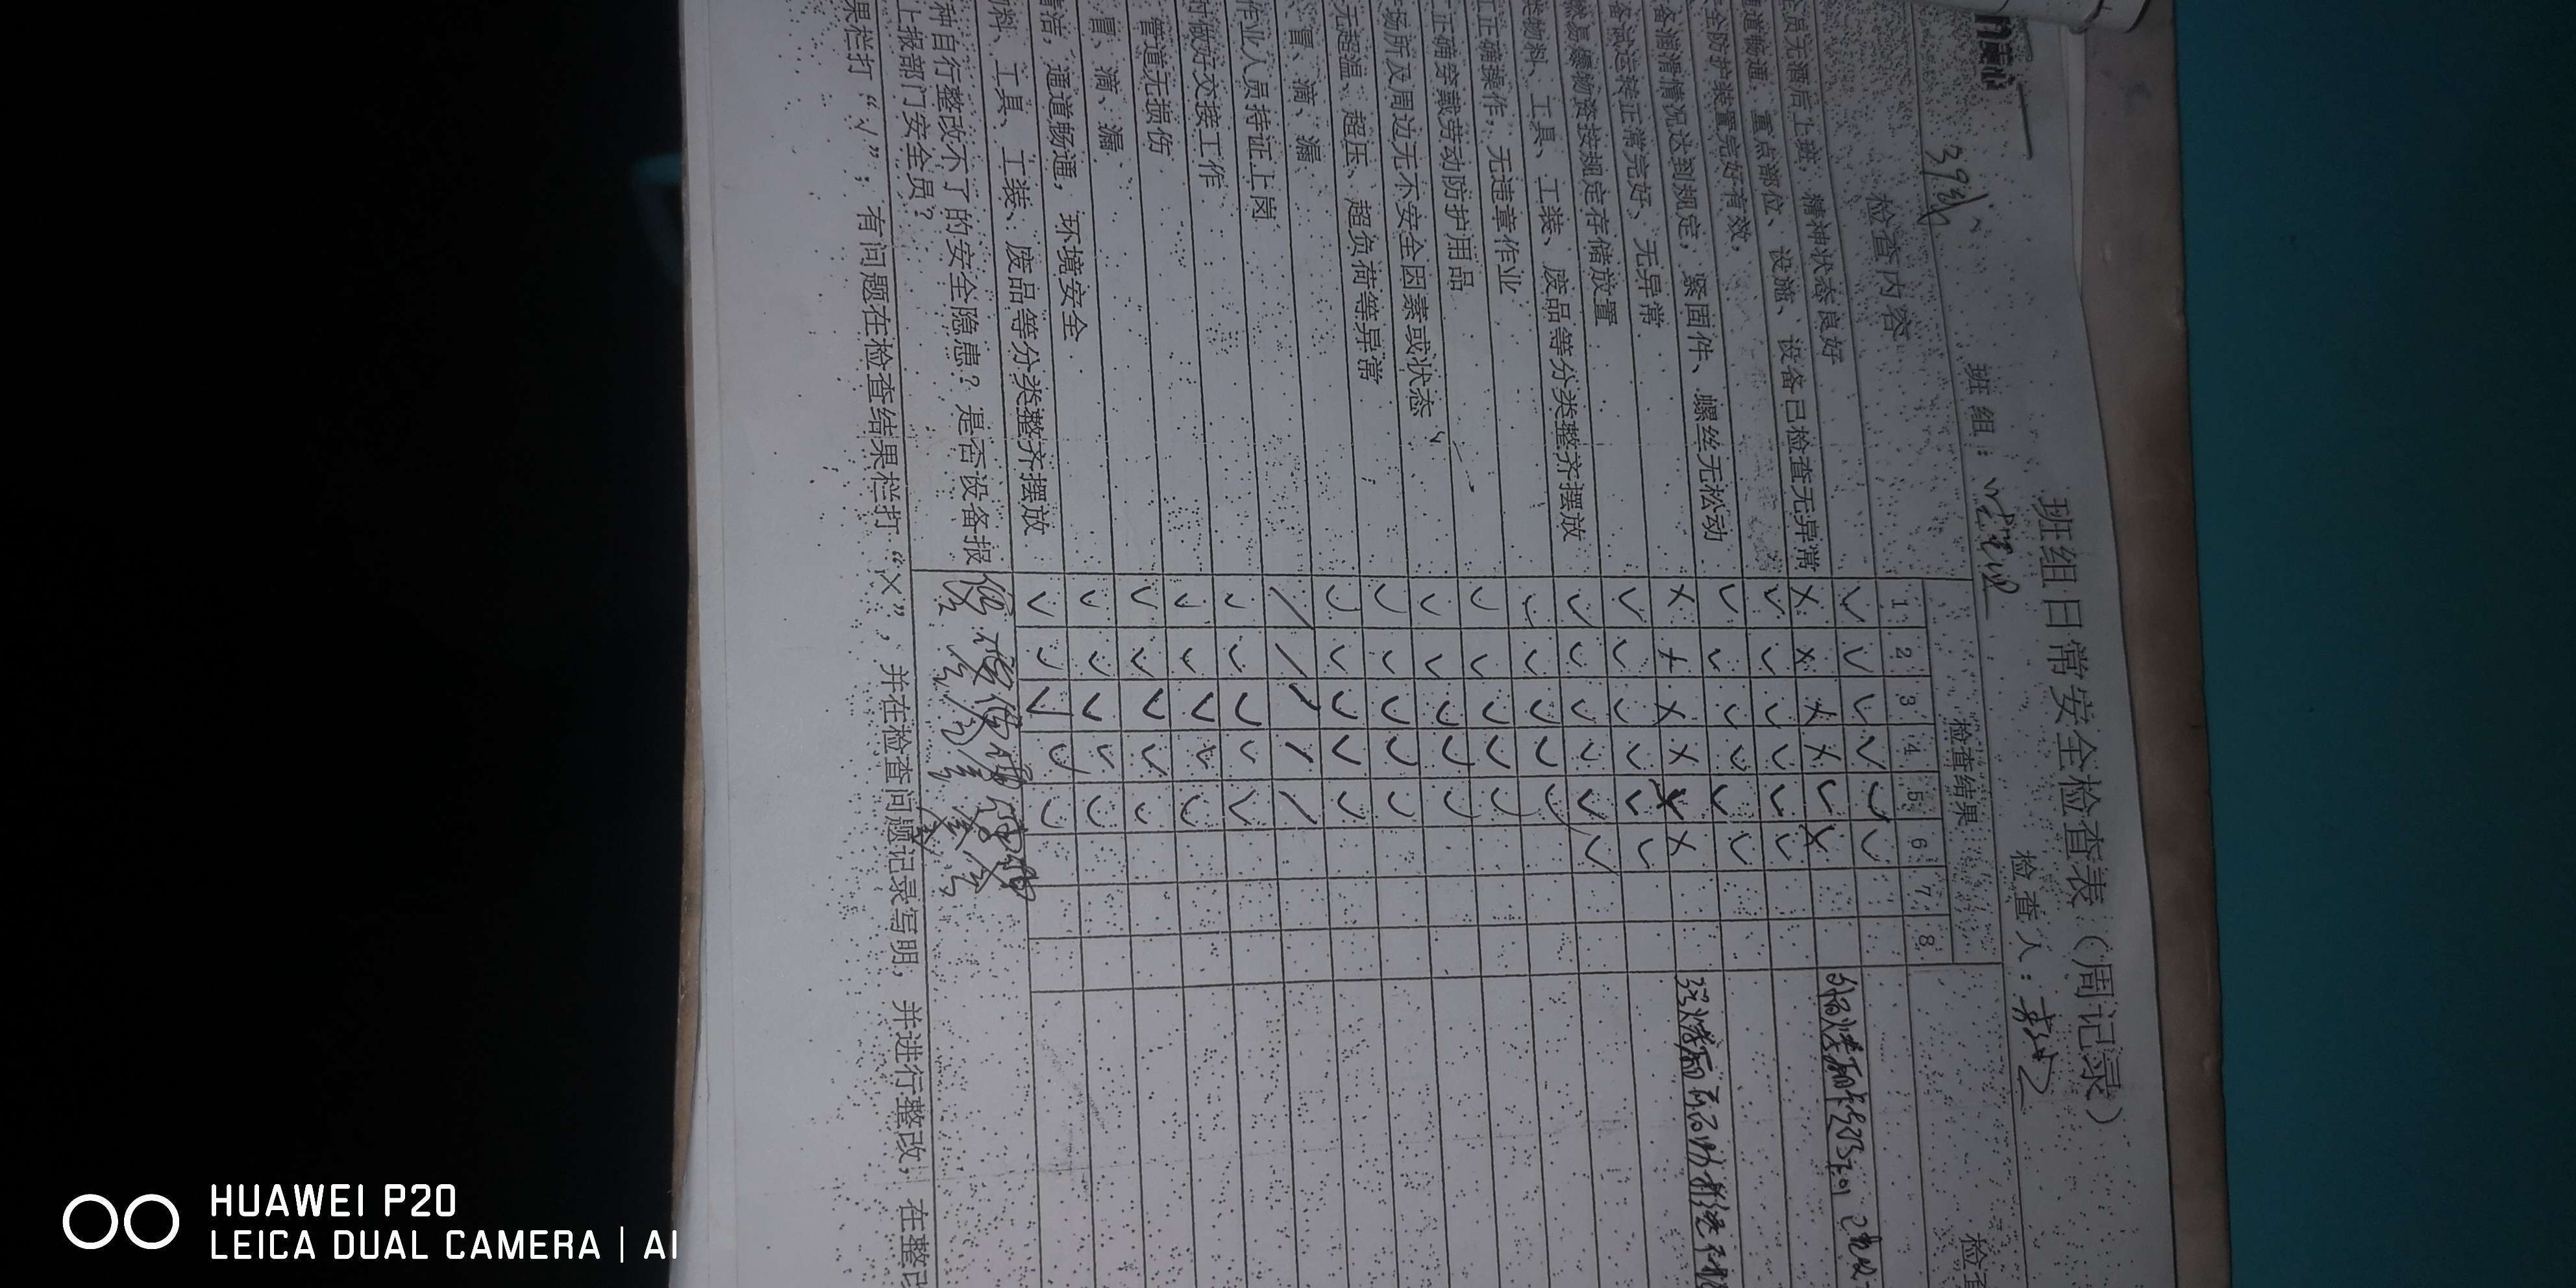 班组日常安全检查表（周记录）
班组：
检查人：
检查内容
检查结果
1 2 3 4 5 6 7 8
员无酒后上班，精神状态良好 √ √ √ √ √ √
道畅通，重点部位、设施、设备已检查无异常 × × × × √ ×
全防护装置完好有效， √ √ √ √ √ √
备润滑情况达到规定，紧固件、螺丝无松动 √ √ √ √ √ √
备试运转正常完好、无异常 × × × × ×
燃易爆物资按规定存储放置 √ √ √ √ √ √
类物料、工具、工装、废品等分类整齐摆放 √ √ √ √ √ √
工正确操作，无违章作业 √ √ √ √ √
工正确穿戴劳动防护用品 √ √ √ √ √
场所及周边无不安全因素或状态 √ √ √ √ √
无超温、超压、超负荷等异常 √ √ √ √ √
冒、滴、漏 √ √ √ √ √
作业人员持证上岗 / / / / /
时做好交接工作 √ √ √ √ √
管道无损伤 √ √ √ √ √
冒、滴、漏 √ √ √ √ √
清洁，通道畅通，环境安全 √ √ √ √ √
料、工具、工装、废品等分类整齐摆放 √ √ √ √ √
种自行整改不了的安全隐患？是否设备报
上报部门安全员？
果栏打“√”；有问题在检查结果栏打“×”，并在检查问题记录写明，并进行整改，在整改
HUAWEI P20
LEICA DUAL CAMERA | AI